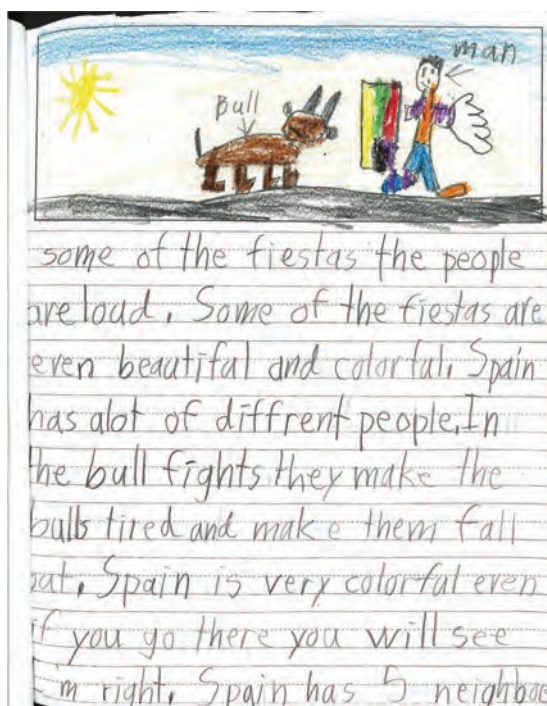 man
Bull
some of the fiestas the people
are loud. Some of the fiestas are
even beautiful and colorful. Spain
has alot of diffrent people. In
the bull fights they make the
bulls tired and make them fall
Spain is very colorful even
if you go there you will see
I'm right. Spain has 5